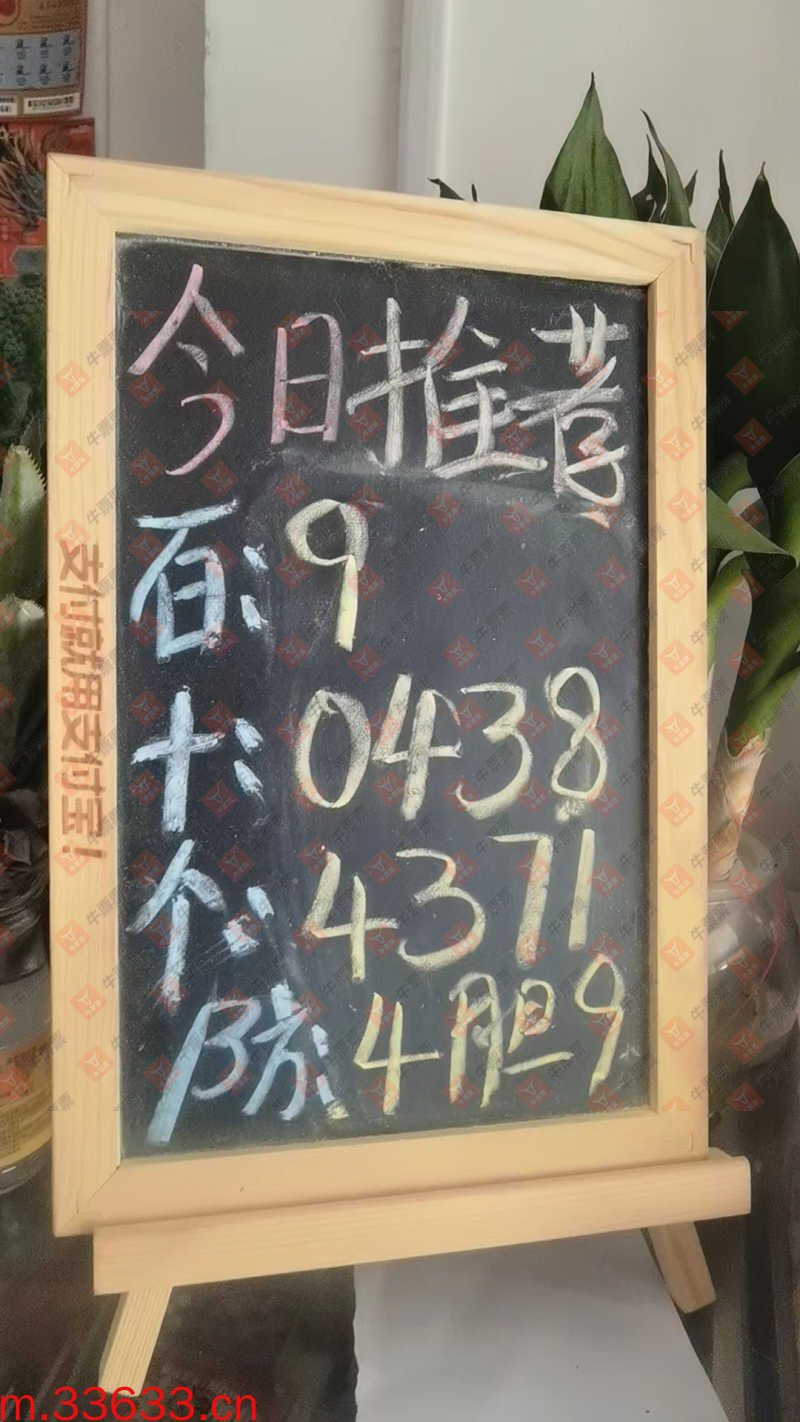 今日推荐
百:9
十:0438
个:4371
防:4胆9
支付就用支付宝!
m.33633.cn